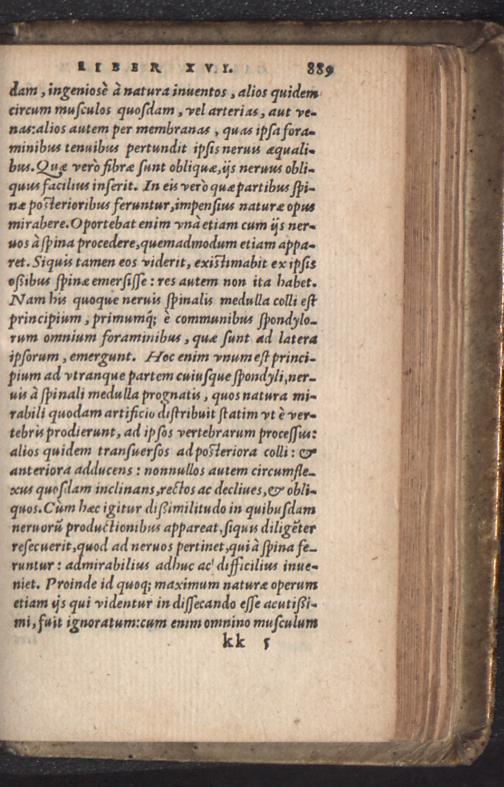 LIBER XVI. 889
dam, ingeniosè à natura inuentos, alios quidem
circum musculos quosdam, vel arterias, aut ve-
nas: alios autem per membranas, quas ipsa fora-
minibus tenuibus pertundit ipsis neruis æquali-
bus. Quæ verò fibræ sunt obliquæ, ijs neruus obli-
quus facilius inserit. In eis verò quæ partibus spi-
næ posterioribus feruntur, impensius naturæ opus
mirabere. Oportebat enim vnà etiam cum ijs ner-
uos à spina procedere, quemadmodum etiam appa-
ret. Siquis tamen eos viderit, existimabit ex ipsis
ossibus spinæ emersisse: res autem non ita habet.
Nam his quoque neruis spinalis medulla colli est
principium, primumq; è communibus spondylo-
rum omnium foraminibus, quæ sunt ad latera
ipsorum, emergunt. Hoc enim vnum est princi-
pium ad vtranque partem cuiusque spondyli, ner-
uis à spinali medulla prognatis, quos natura mi-
rabili quodam artificio distribuit statim vt è ver-
tebris prodierunt, ad ipsos vertebrarum processus:
alios quidem transuersos ad posteriora colli: &
anteriora adducens: nonnullos autem circumfle-
xus quosdam inclinans, rectos ac decliues, & obli-
quos. Cùm hæc igitur dissimilitudo in quibusdam
neruorū productionibus appareat, siquis diligēter
resecuerit, quod ad neruos pertinet, qui à spina fe-
runtur: admirabilius adhuc ac difficilius inue-
niet. Proinde id quoq; maximum naturæ operum
etiam ijs qui videntur in dissecando esse acutissi-
mi, fuit ignoratum: cum enim omnino musculum
kk 5